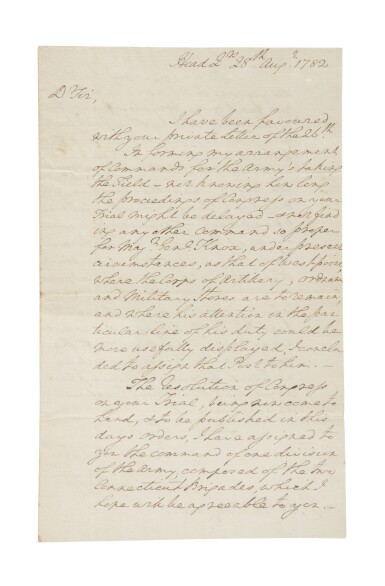 Head Qrs 28th Augt 1782
Dr Sir,
I have been favoured
with your private letter of the 26th
In forming my arrangement
of Commands for the Army's taking
the Field – not knowing how long
the proceedings of Congress on your
Trial might be delayed – & not find
ing any other command so proper
for Majr Genl Knox, under present
circumstances, as that of Westpoint
where the Corps of Artillery, ordnan
and Military Stores are to remain,
and where his attention in the par
ticular line of his duty could be
more usefully displayed, I conclu
ded to assign that Post to him. –
The Resolution of Congress
on your Trial, being now come to
hand, & to be published in this
days orders, I have assigned to
you the command of one division
of the Army, composed of the two
Connecticut Brigades, which I
hope will be agreeable to you. –